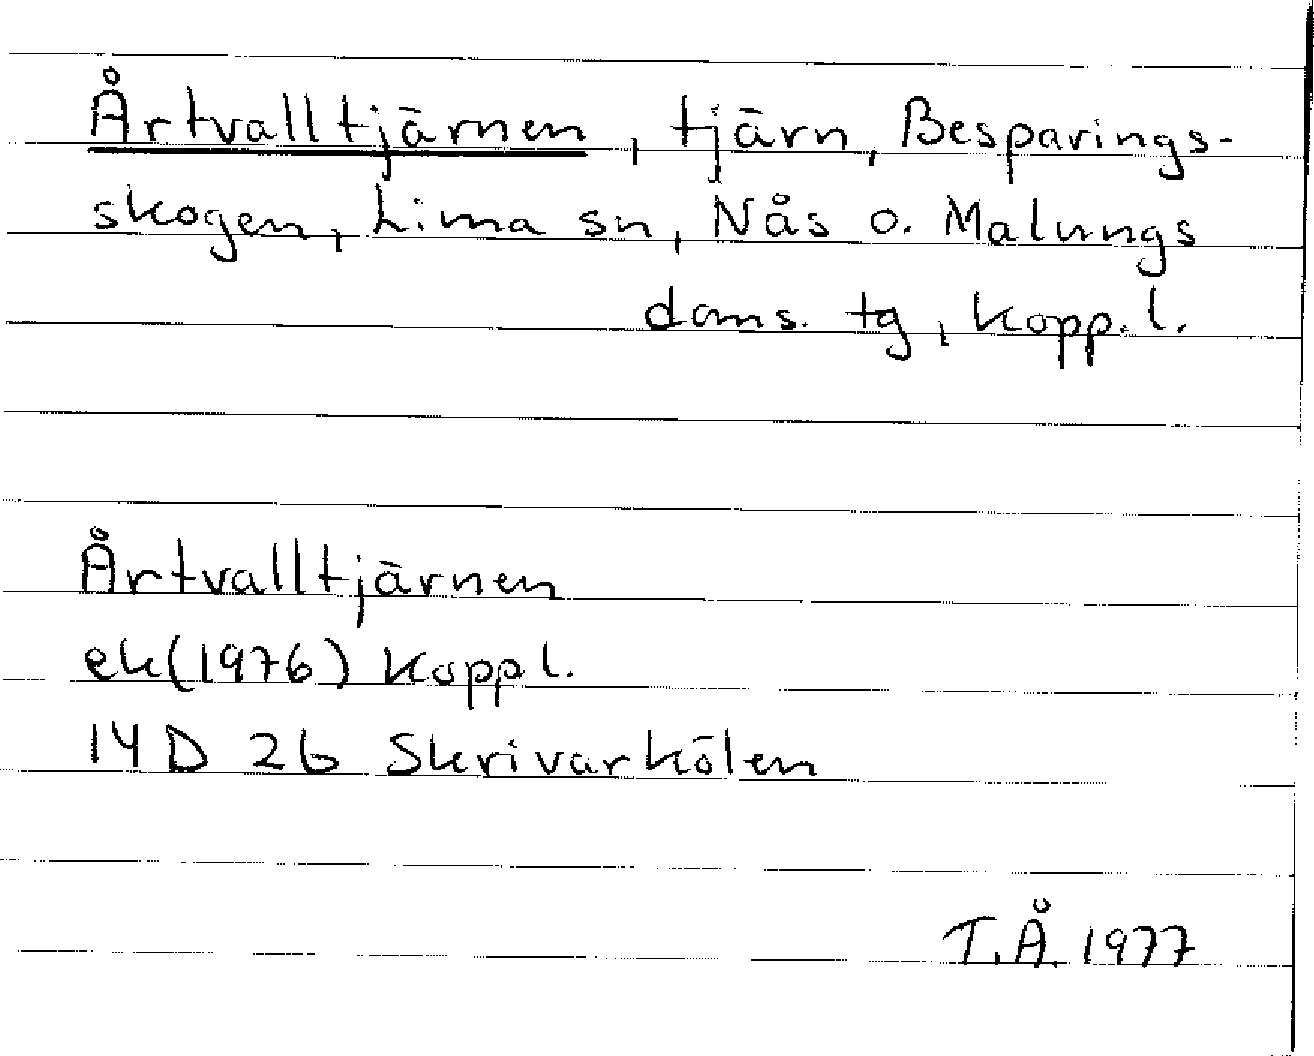 Årtvalltjärnen, tjärn, Besparings-
skogen, Lima sn, Nås o. Malungs
doms. tg, Kopp. l.
Årtvalltjärnen
ek(1976) Kopp l.
14 D 2b Skrivarkölen
T.Å. 1977